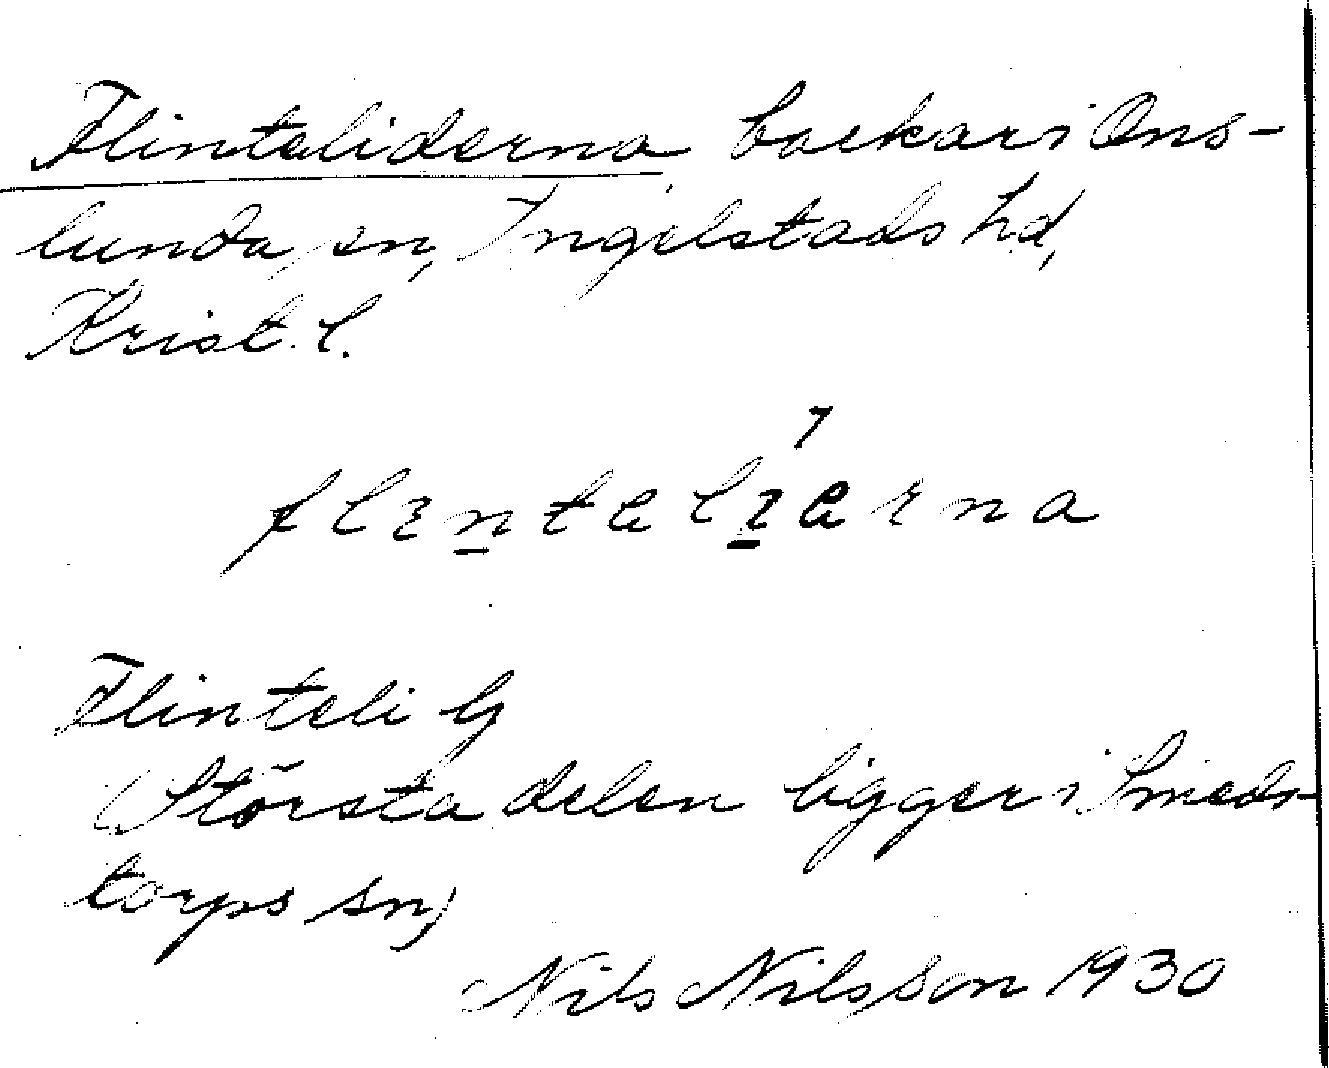 Flinteliderna backar i Ons-
lunda sn, Ingelstads hd,
Krist. l.
Flinteli G
(Största delen ligger i Smeds-
torps sn)
Nils Nilsson 1930